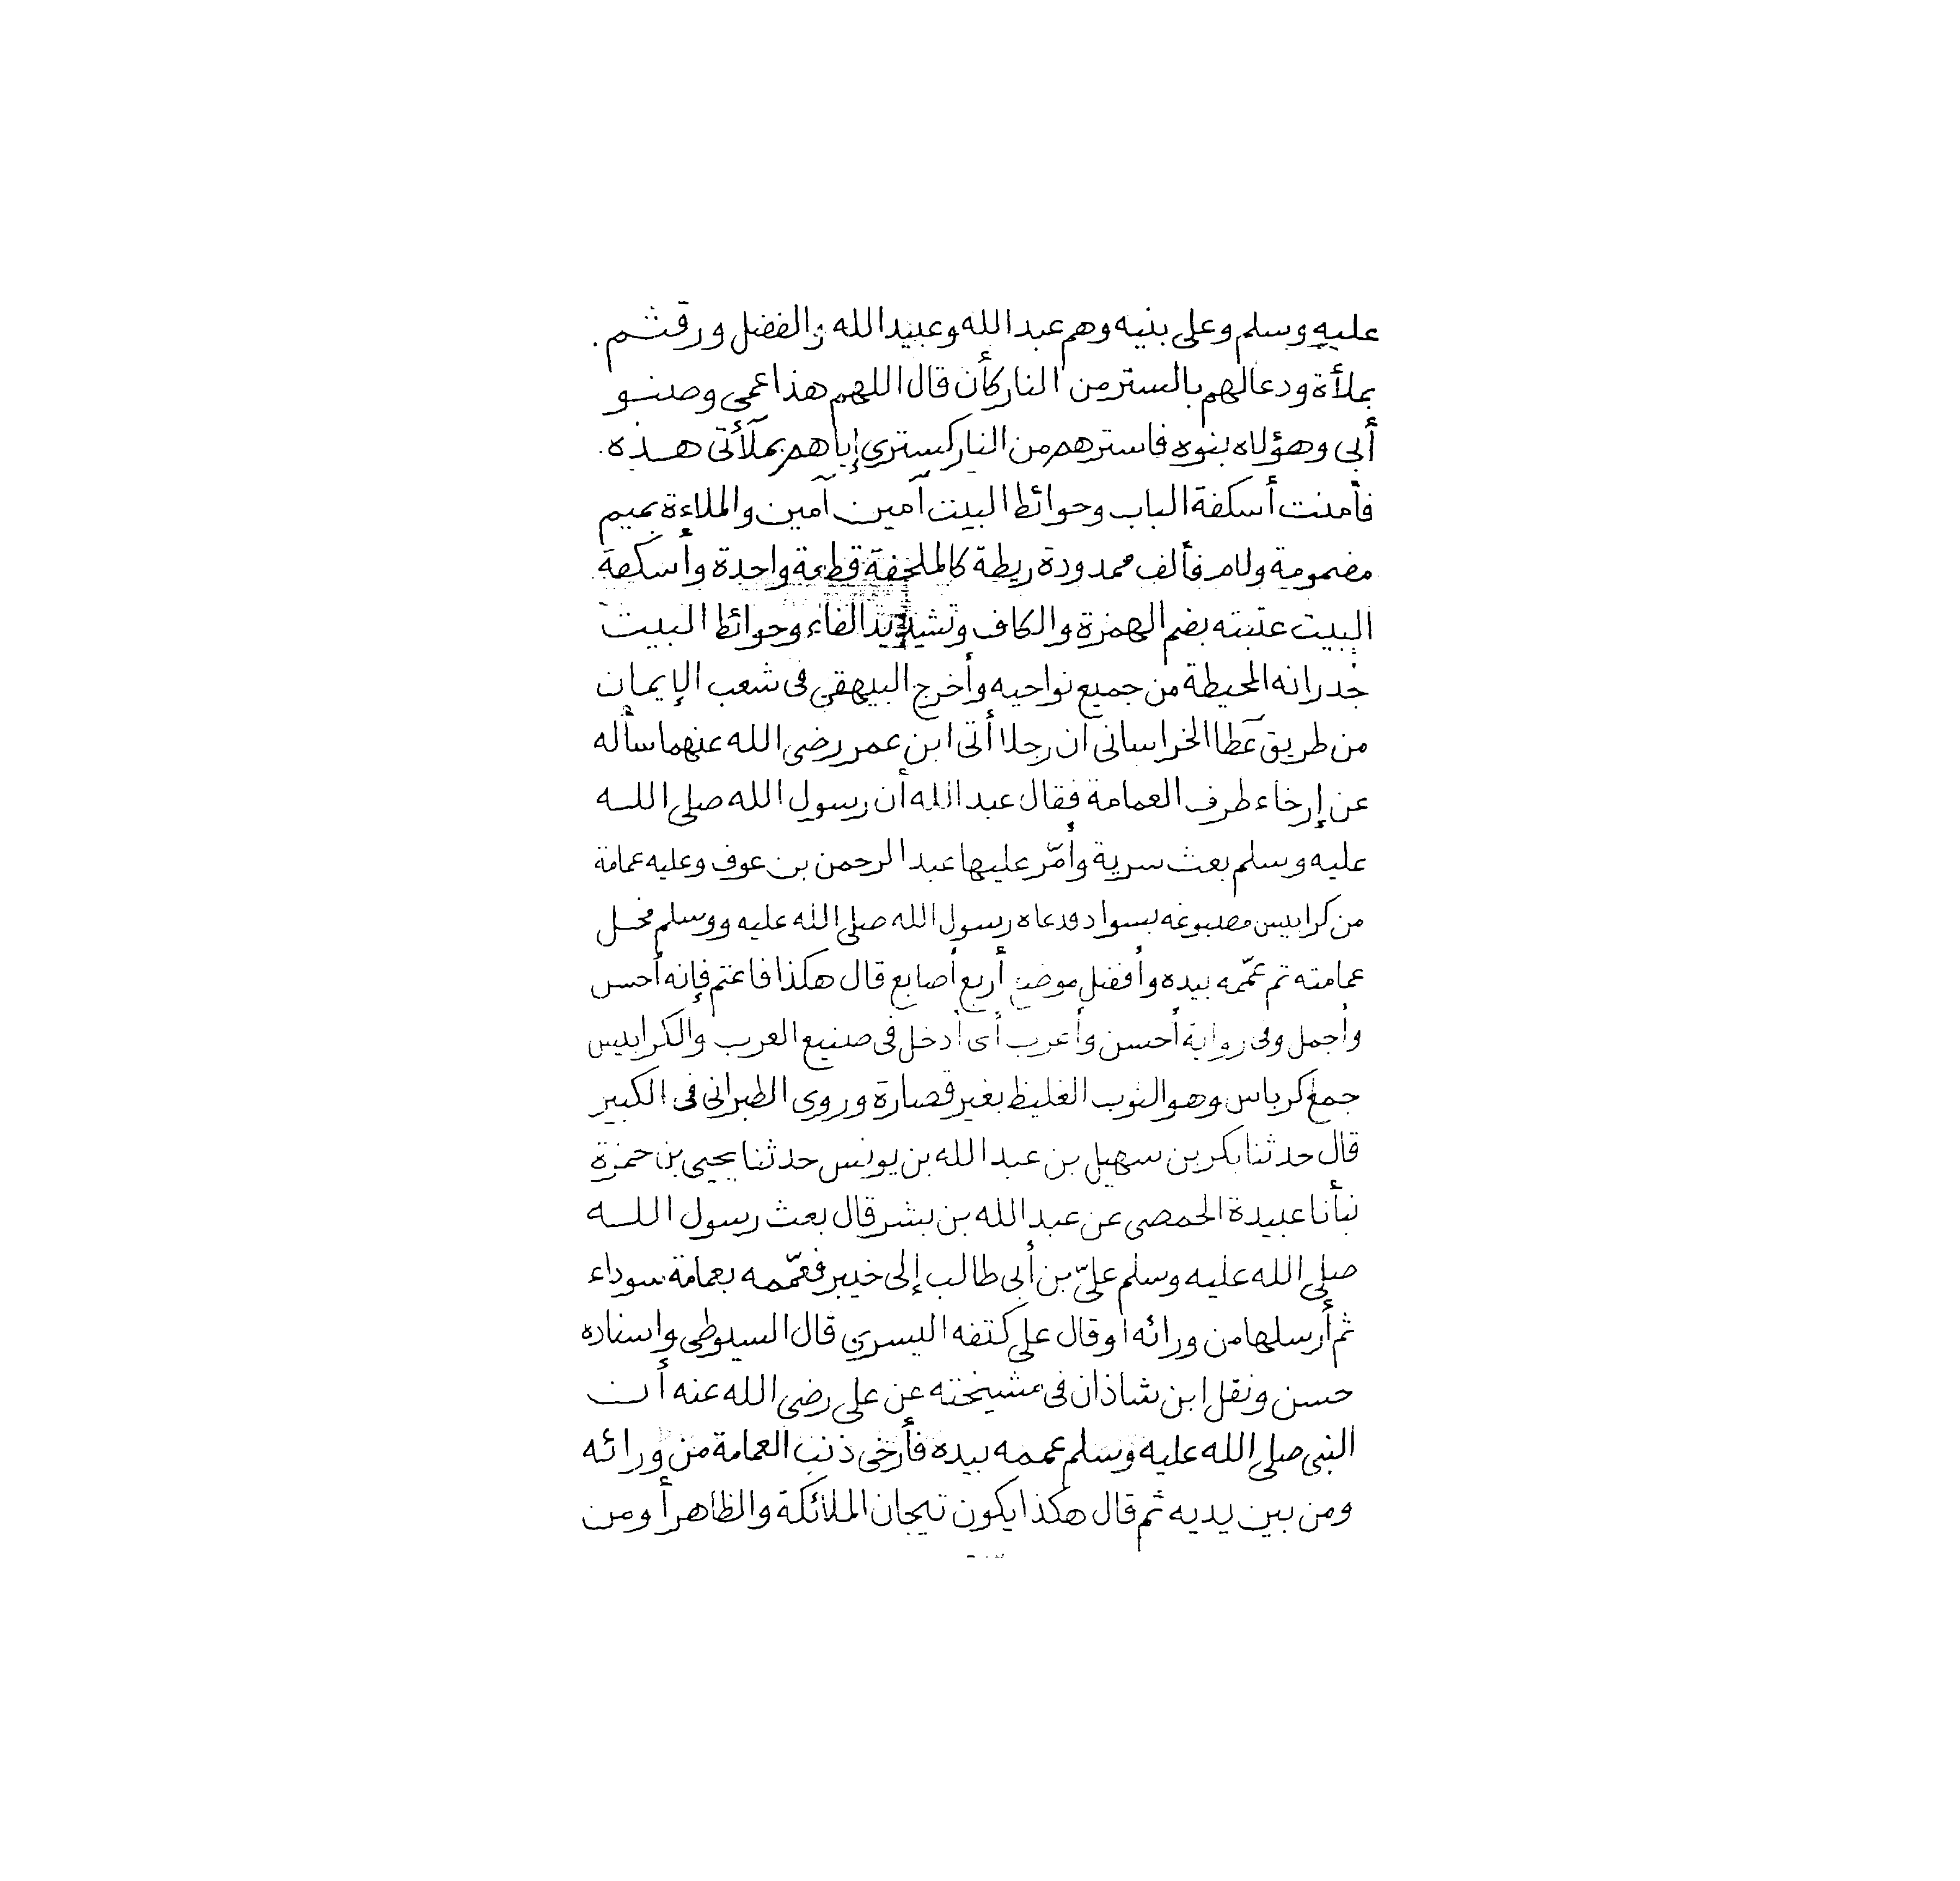 عليه وسلم وعلى بنيه وهم عبد الله وعبيد الله والفضل ورقثم.
بملأة ودعا لهم بالستر من النار كأن قال اللهم هذا عمي وصنو
أبى وهؤلاه بنوه فاسترهم من النار كستري إياهم بملآتى هذه.
فأمنت أسكفة الباب وحوائط البيت آمين آمين والملاءة بميم
مضمومة ولام فألف ممدودة ريطة كالملحفة قطعة واحدة وأسكفة
البيت عتبته بضم الهمزة والكاف وتشديد الفاء وحوائط البيت
جدرانه المحيطة من جميع نواحيه وأخرج البيهقي فى شعب الإيمان
من طريق عطا الخراسانى أن رجلا أتى ابن عمر رضى الله عنهما سأله
عن إرخاء طرف العمامة فقال عبد الله أن رسول الله صلى الله
عليه وسلم بعث سرية وأمّر عليها عبد الرحمن بن عوف وعليه عمامة
من كرابيس مصبوغه بسواد فدعاه رسول الله صلى الله عليه ووسلم فحل
عمامته ثم عمّمه بيده وأفضل موضع أربع أصابع قال هكذا فاعتم فإنه أحسن
وأجمل وفى رواية أحسن وأعرب أى أدخل فى صنيع العرب والكرابيس
جمع كرباس وهو الثوب الغليظ بغير قصارة وروى الطبرانى فى الكبير
قال حدثنا بكر بن سهيل بن عبد الله بن يونس حدثنا يحيى بن حمزة
نبأنا عبيدة الحمصى عن عبد الله بن بشر قال بعث رسول الله
صلى الله عليه وسلم علىّ بن أبى طالب إلى خيبر فعمّمه بعمامة سوداء
ثم أرسلها من ورائه أو قال على كتفه اليسرى قال السيوطى وإسناده
حسن ونقل ابن شاذان فى مشيخته عن على رضى الله عنه أن
النبى صلى الله عليه وسلم عممه بيده فأرخى ذنب العمامة من ورائه
ومن بين يديه ثم قال هكذا يكون تيجان الملائكة والظاهر أو من